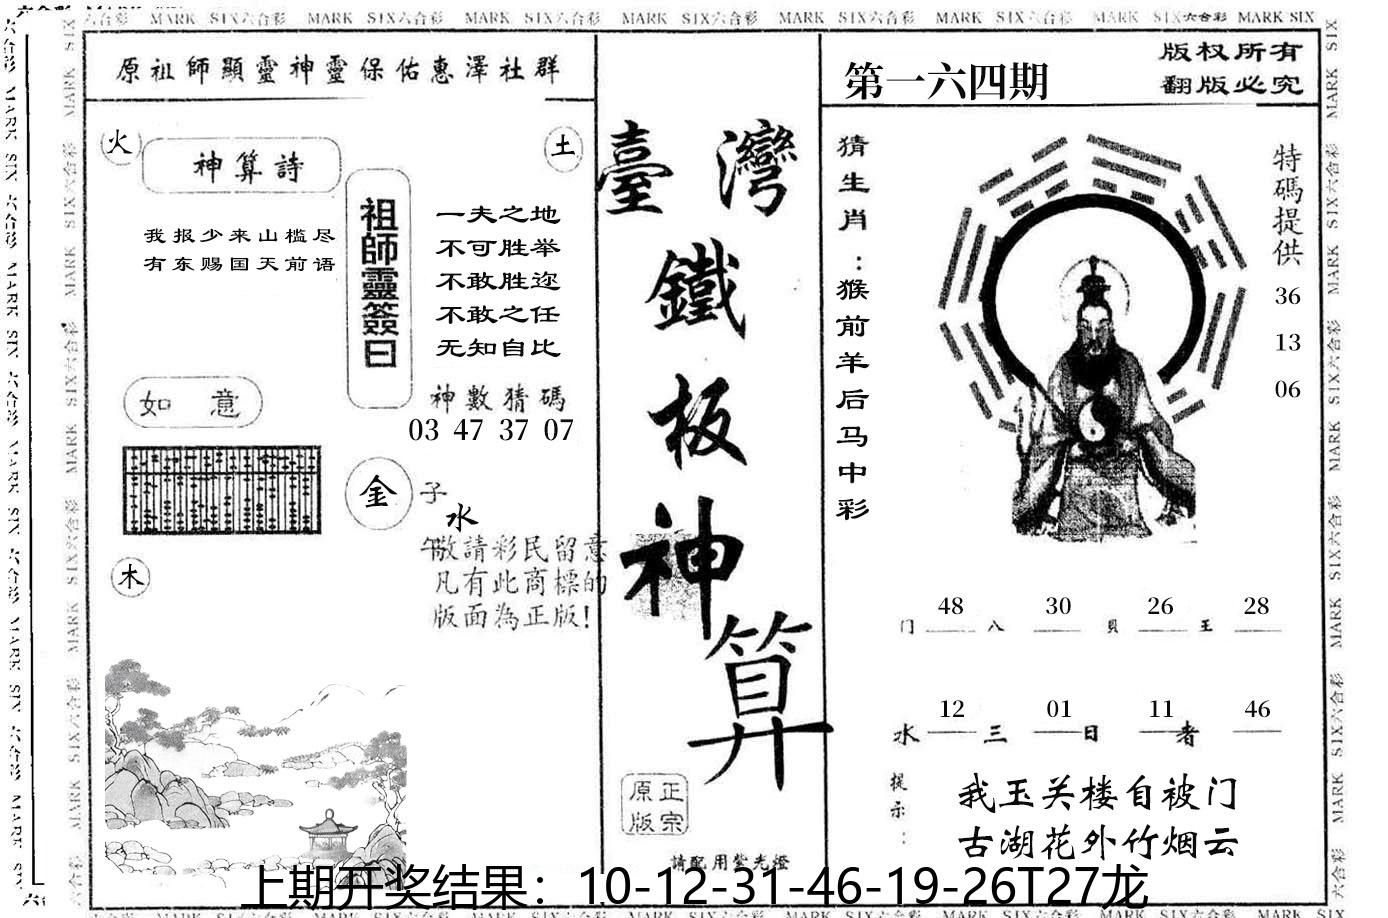 MARK SIX六合彩 MARK SIX六合彩 MARK SIX六合彩 MARK SIX六合彩 MARK SIX六合彩 MARK SIX六合彩 MARK SIX六合彩 MARK SIX
原祖師顯靈神靈保佑惠澤社群
火
土
神算詩
我报少来山槛尽
有东赐国天前语
祖師靈簽曰
一夫之地
不可胜举
不敢胜迩
不敢之任
无知自比
神數猜碼
03 47 37 07
如意
金
子
水
午
木
敬請彩民留意
凡有此商標的
版面為正版!
臺灣
鐵
板
神
算
原正
版宗
請配用紫光燈
第一六四期
版权所有
翻版必究
猜生肖:猴前羊后马中彩
特碼提供
36
13
06
门 48 八 30 貝 26 王 28
水 12 三 01 日 11 者 46
提示:
我玉关楼自被门
古湖花外竹烟云
上期开奖结果：10-12-31-46-19-26T27龙